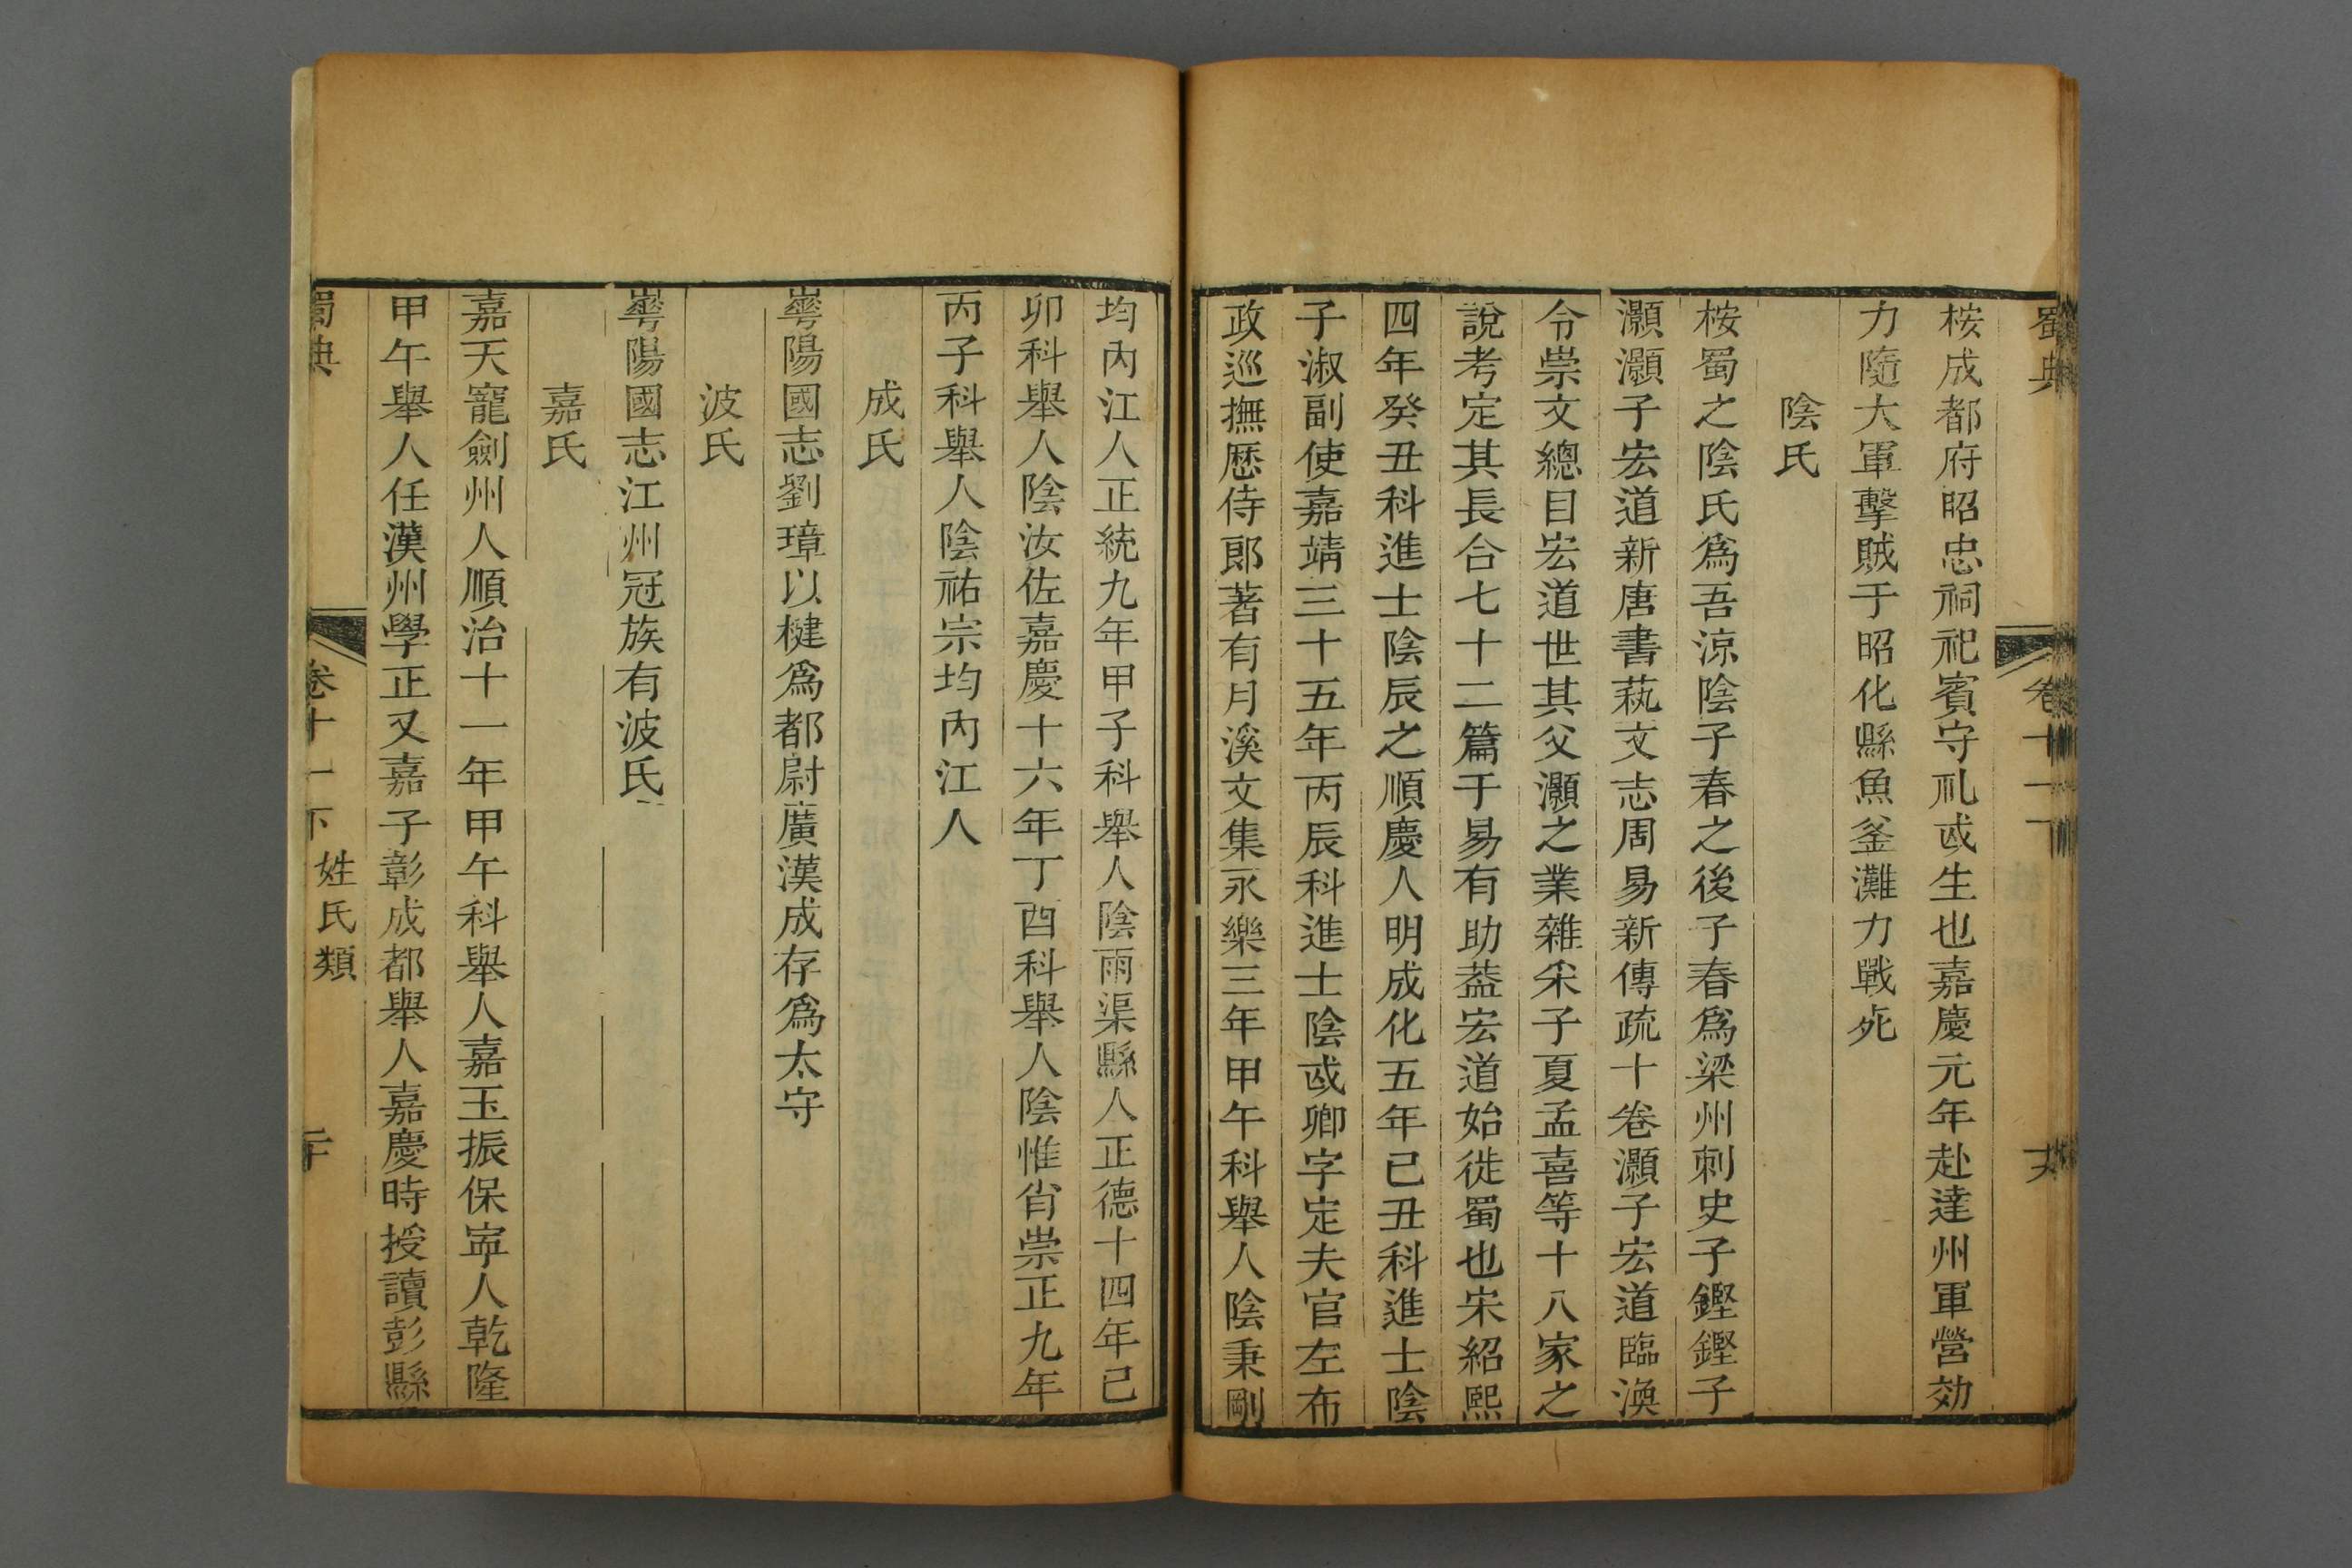 蜀典
卷十一下
桉成都府昭忠祠祀賓守礼或生也嘉慶元年赴達州軍營効
力隨大軍擊賊于昭化縣魚釜灘力戰死
陰氏
桉蜀之陰氏爲吾涼陰子春之後子春爲梁州刺史子鏗鏗子
灝灝子宏道新唐書蓺文志周易新傳疏十卷灝子宏道臨渙
令崇文總目宏道世其父灝之業雜采子夏孟喜等十八家之
說考定其長合七十二篇于易有助葢宏道始徙蜀也宋紹熙
四年癸丑科進士陰辰之順慶人明成化五年己丑科進士陰
子淑副使嘉靖三十五年丙辰科進士陰或卿字定夫官左布
政巡撫歷侍郎著有月溪文集永樂三年甲午科舉人陰秉剛
均內江人正統九年甲子科舉人陰雨渠縣人正德十四年己
卯科舉人陰汝佐嘉慶十六年丁酉科舉人陰惟肖崇正九年
丙子科舉人陰祐宗均內江人
成氏
崋陽國志劉璋以楗爲都尉廣漢成存爲太守
波氏
崋陽國志江州冠族有波氏
嘉氏
嘉天寵劍州人順治十一年甲午科舉人嘉玉振保寧人乾隆
甲午舉人任漢州學正又嘉子彰成都舉人嘉慶時授讀彭縣
蜀典
卷十一下
姓氏類
二十